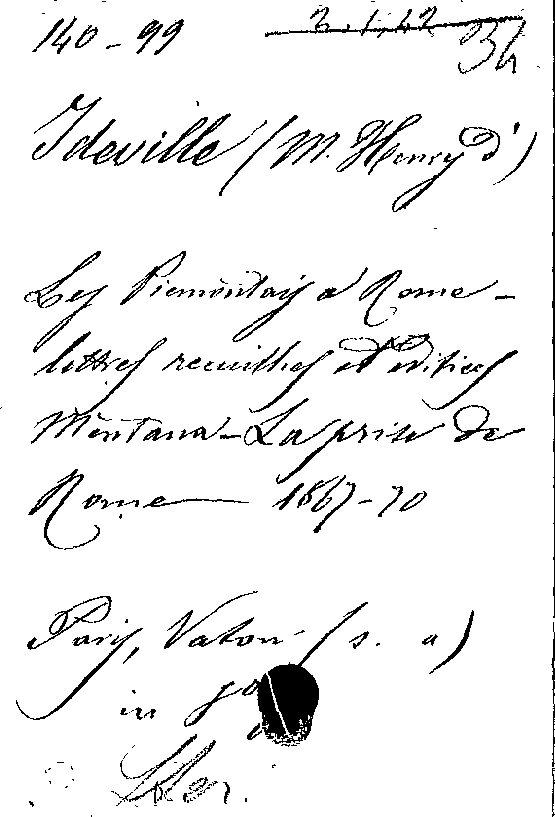 140-99 2.1.42
Ideville (M. Henry d')
Les Piemontais a Rome -
lettres recueillies et editées
Mentana - La prise de
Rome — 1867-70
Paris, Vaton (s. a)
in